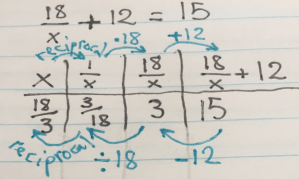 18/x + 12 = 15
reciprocal ·18 +12
x | 1/x | 18/x | 18/x + 12
18/3 | 3/18 | 3 | 15
reciprocal ÷18 -12